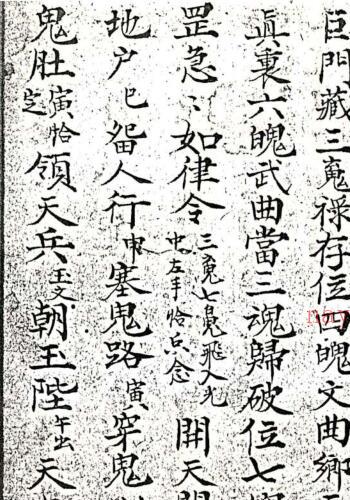 巨門藏三魂禄存位魄文曲鄉
眞裏六魄武曲當三魂歸破位七
罡急〻如律令三魂七魄飛入光中左手恰点念開天
地户巳留人行申塞鬼路寅穿鬼
鬼肚寅恰定領天兵玉文朝玉陛午出天